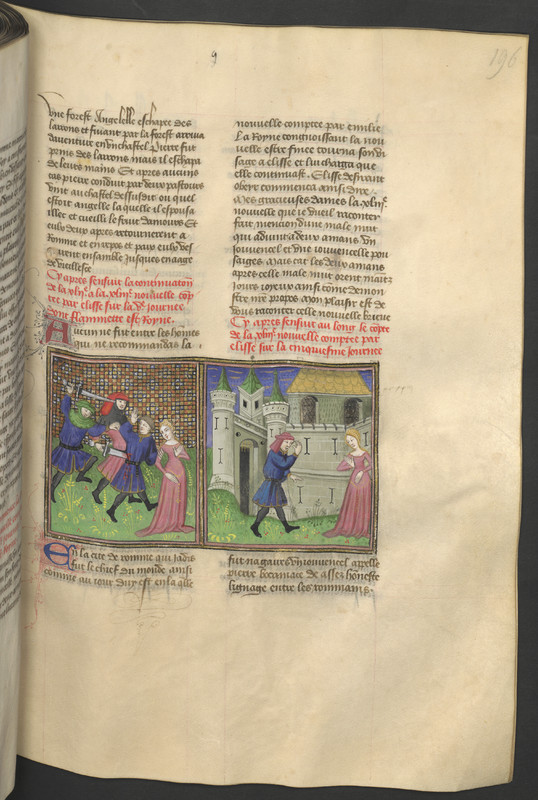 9
196
vne forest Angelelle eschapee des
larrons et fuiant par la forest arriua
dauenture en vn chastel Pierre fut
prins des larrons mais il eschapa
de leurs mains Et apres aucuns
cas pierre conduit par deux pastours
vint au chastel dessusdit ou quel
estoit angelle la quelle il espousa
illec et cueilli le fruit damours Et
eulx deux apres retournerent a
Romme et en repos et paix eulx de
uient ensamble jusques en aage
de vieillesse
Cy apres sensuit la continuacion
de la a la nouuelle cop
tee par elisse sur la ve journee
dont flammette est Royne.
Aucun ne fut entre les homes
qui ne recommandast la
nouuelle comptee par emilie
La Royne congnoissant la nou
uelle estre finee tourna son vi
sage a elisse et lui charga que
elle continuast. Elisse desirant
obeir commenca ainsi dire.
Mes gracieuses dames la
nouuelle que ie vueil raconter
fait mention dune male nuit
qui aduint a deux amans vn
jouuencel et vne jouuencelle pou
sages mais car les deux amans
apres celle male nuit orent maintz
jours joyeux ainsi come demon
stre mon propos mon plaisir est de
vous raconter celle nouuelle brieue
Cy apres sensuit au long le copte
de la nouuelle comptee par
elisse sur la cinquiesme journee
En la cite de romme qui jadis
fut le chief du monde ainsi
comme au jour duy est en la que
fut nagaires vn jouuencel appelle
pierre bocamace de assez honeste
lignage entre les rommains.